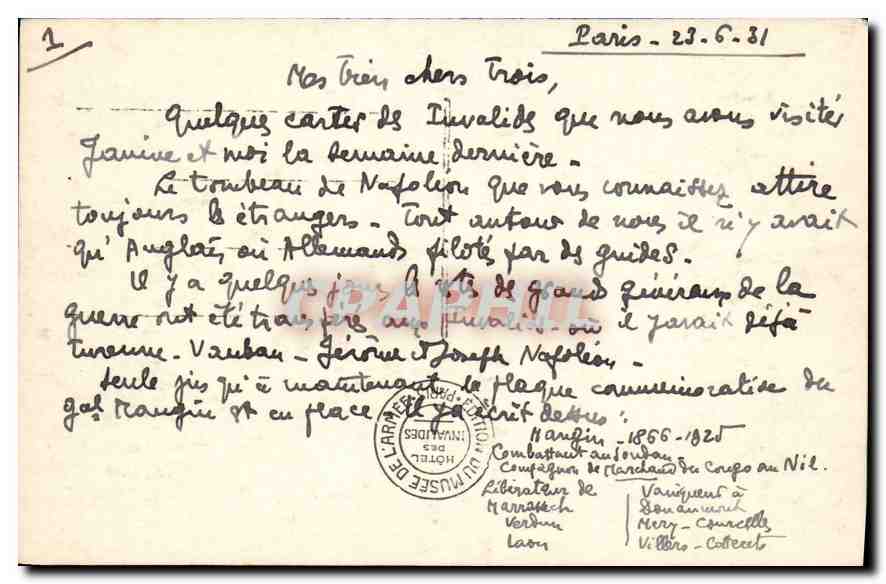 1
Paris - 23-6-31
Mes bien chers Trois,
Quelques cartes des Invalides que nous avons visités
Janine et moi la semaine dernière -
Le tombeau de Napoléon que vous connaissez attire
toujours les étrangers - Tout autour de nous il n'y avait
qu'Anglais ou Allemands pilotés par des guides.
Il y a quelques jours les restes des grands généraux de la
guerre ont été transférés aux Invalides où il y avait déjà
Turenne - Vauban - Jérôme et Joseph Napoléon -
Seule jusqu'à maintenant la plaque commémorative du
gal Mangin est en place. Il y a écrit dessus :
Mangin - 1866 - 1925
Combattant au Soudan
Compagnon de Marchand du Congo au Nil.
Libérateur de
Marrakech
Verdun
Laon
Vainqueur à
Douaumont
Mery - Courcelles
Villers - Cotterets
CPAPHIL
EDITION DU MUSÉE DE L'ARMÉE - PARIS
HÔTEL
DES
INVALIDES